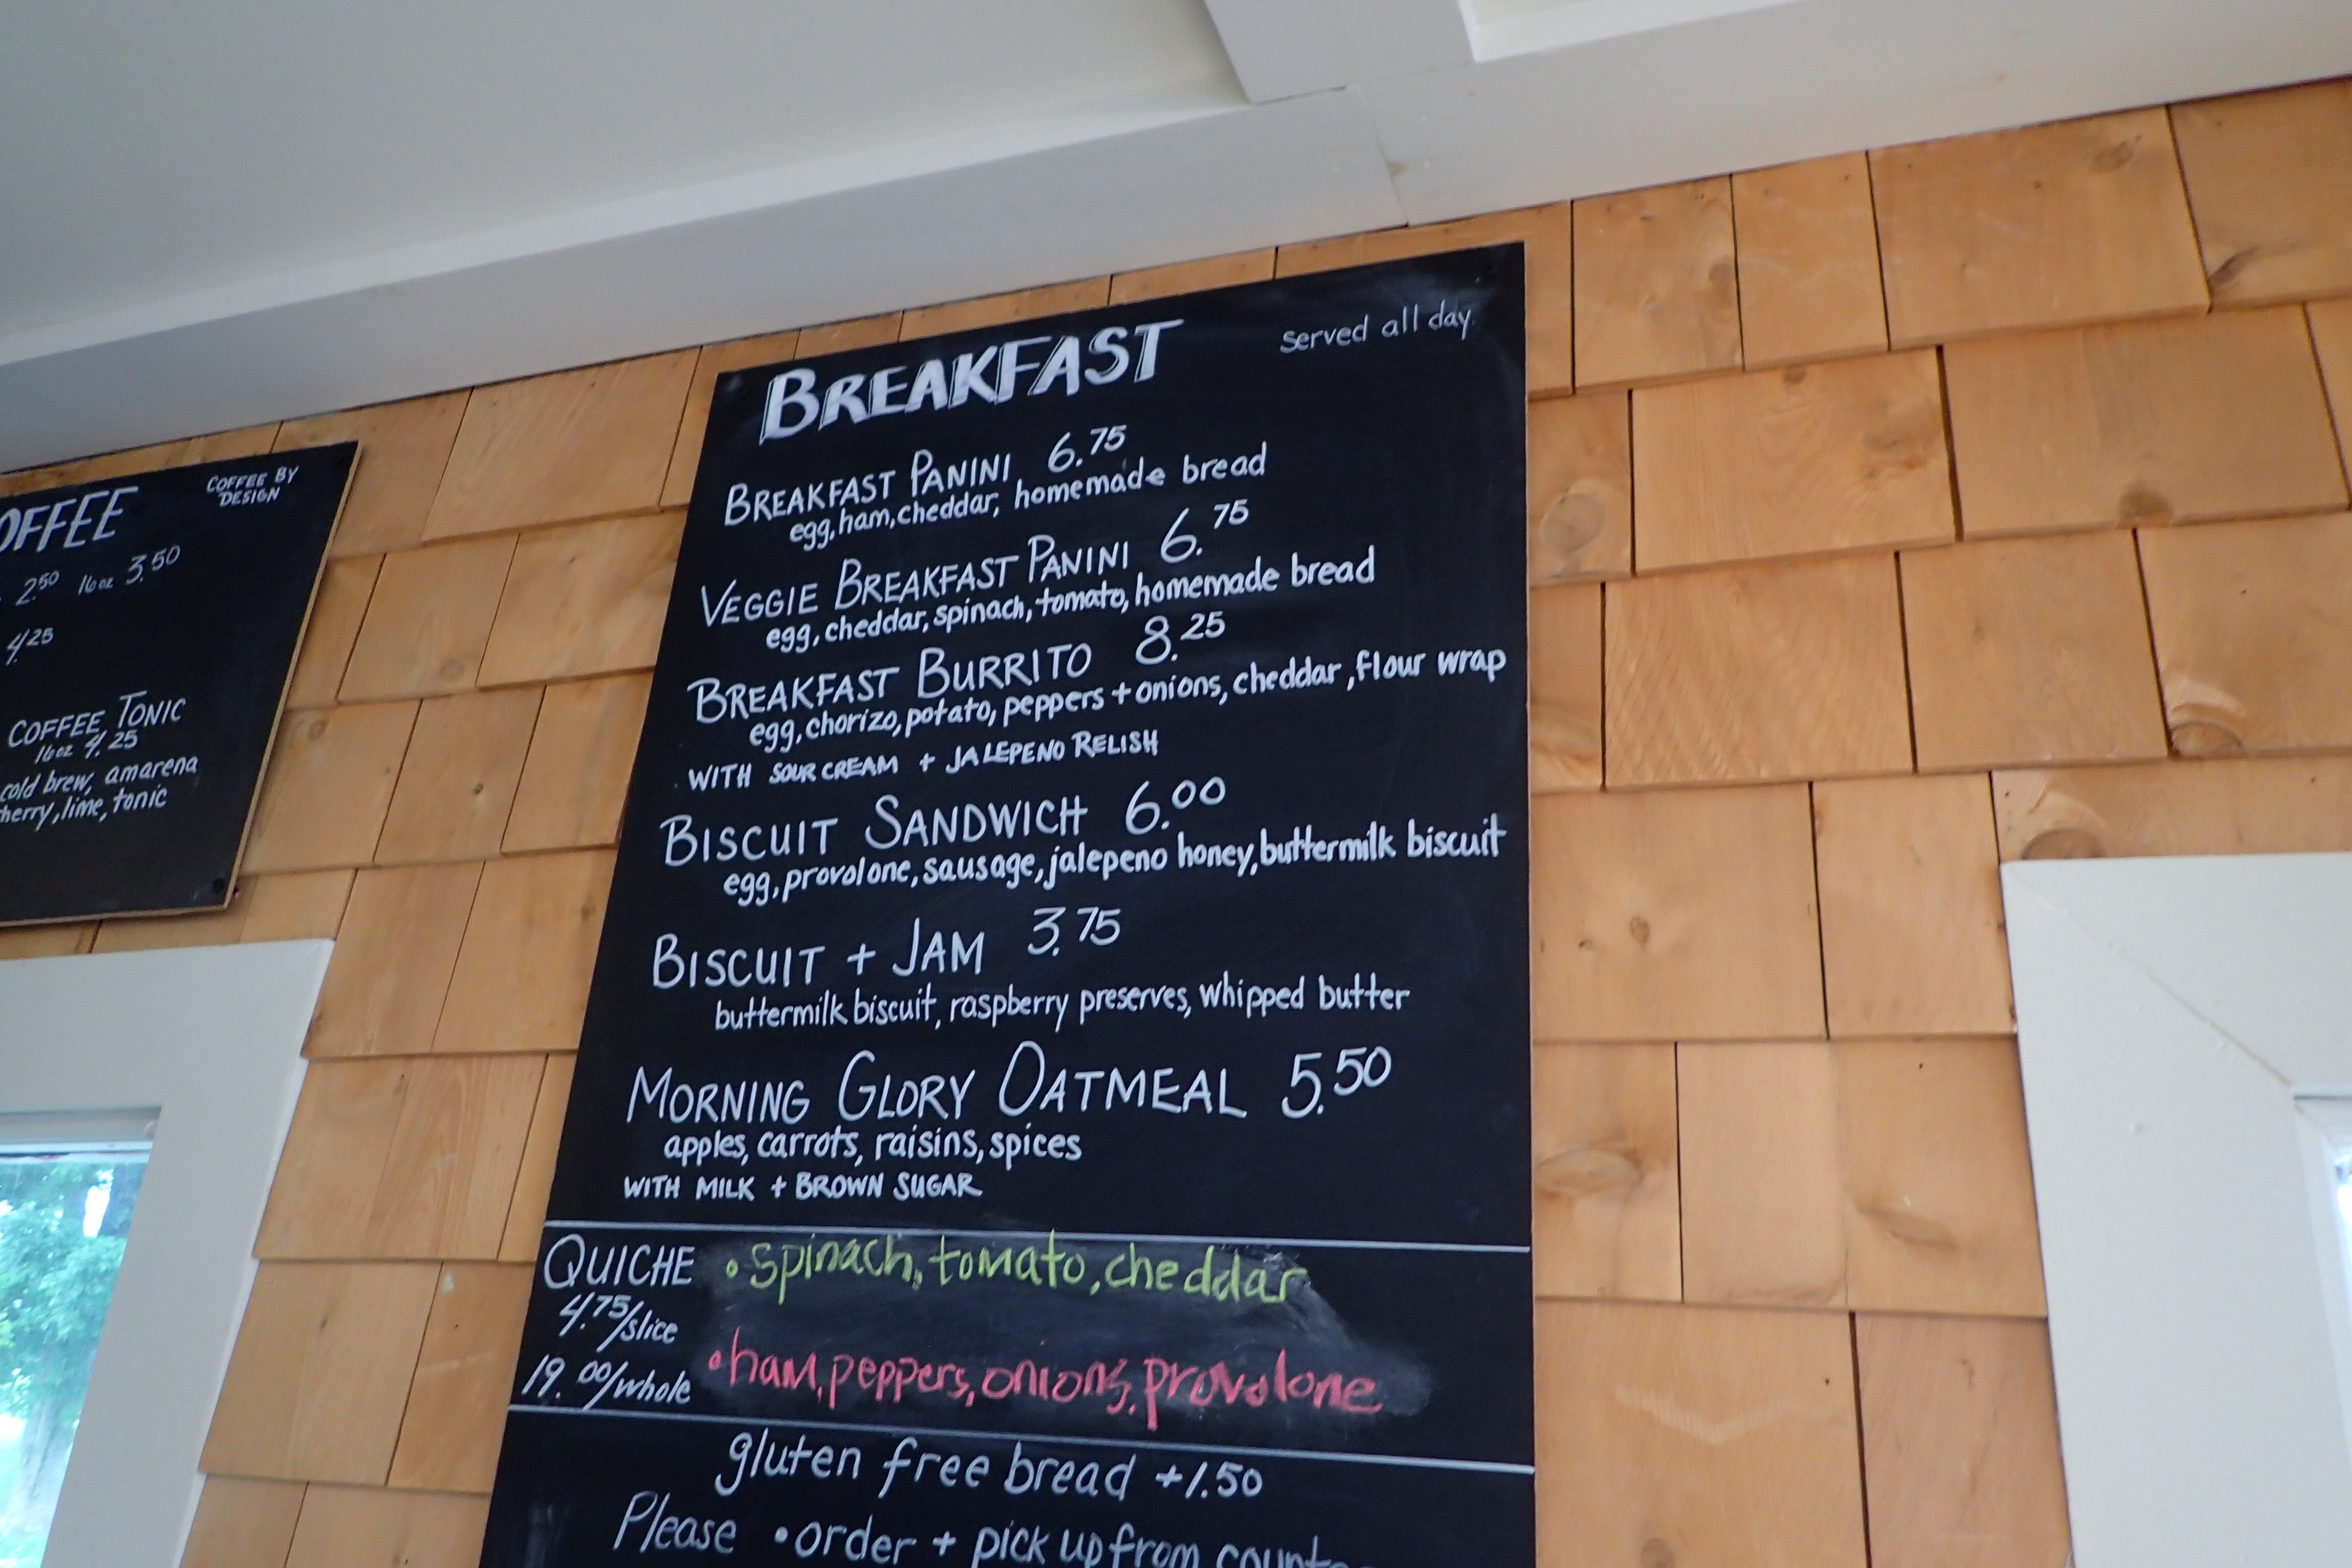 COFFEE BY
DESIGN
2.50 16oz 3.50
4.25
COFFEE TONIC
16oz 4.25
cold brew, amarena
lime, tonic
BREAKFAST
served all day
BREAKFAST PANINI 6.75
egg, ham, cheddar, homemade bread
VEGGIE BREAKFAST PANINI 6.75
egg, cheddar, spinach, tomato, homemade bread
BREAKFAST BURRITO 8.25
egg, chorizo, potato, peppers + onions, cheddar, flour wrap
WITH SOUR CREAM + JALEPENO RELISH
BISCUIT SANDWICH 6.00
egg, provolone, sausage, jalepeno honey, buttermilk biscuit
BISCUIT + JAM 3.75
buttermilk biscuit, raspberry preserves, whipped butter
MORNING GLORY OATMEAL 5.50
apples, carrots, raisins, spices
WITH MILK + BROWN SUGAR
QUICHE
4.75/slice
19.00/whole
• spinach, tomato, cheddar
• ham, peppers, onions, provolone
gluten free bread +1.50
Please • order + pick up from